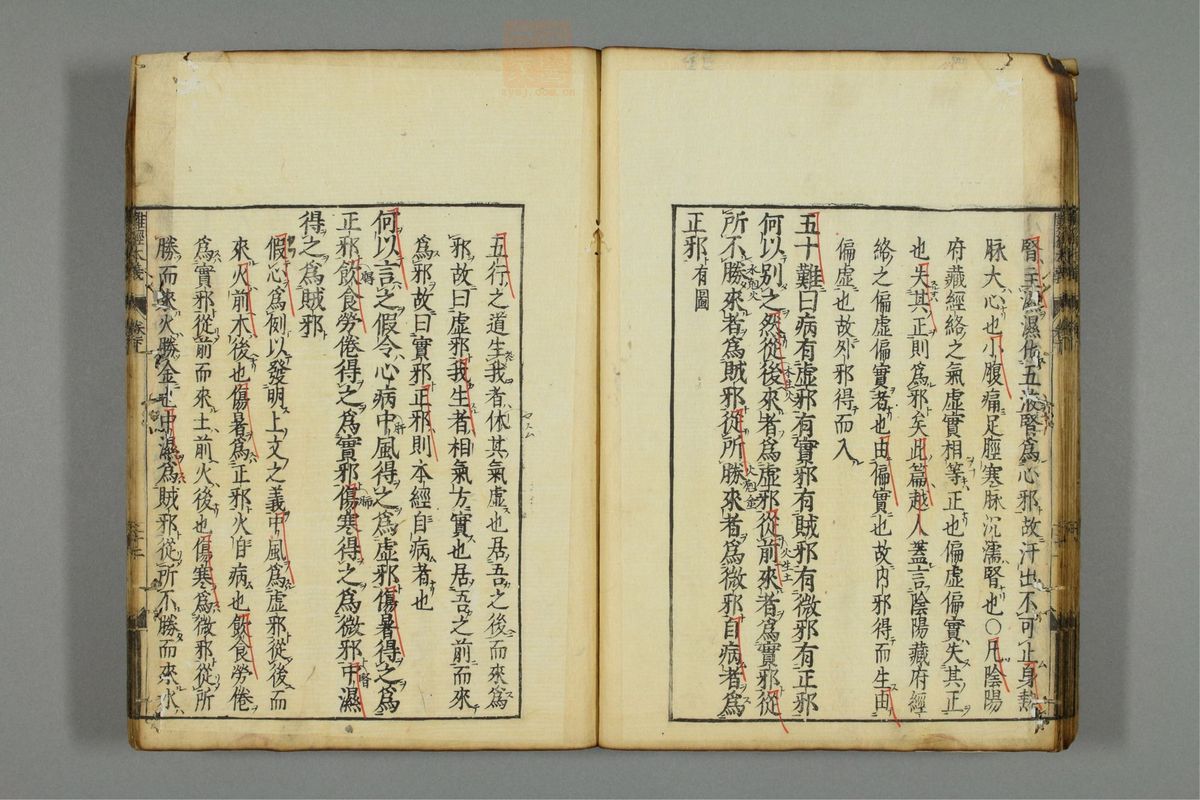 腎主濕濕傷五液腎爲心邪故汗出不可止身熱
脉大心也小腹痛足脛寒脉沉濡腎也〇凡陰陽
府藏經絡之氣虛實相等正也偏虛偏實失其正
也失其正則爲邪矣此篇越人蓋言陰陽藏府經
絡之偏虛偏實者也由偏實也故内邪得而生由
偏虛也故外邪得而入
五十難曰病有虛邪有實邪有賊邪有微邪有正邪
何以別之然從後來者爲虛邪從前來者爲實邪從
所不勝來者爲賊邪從所勝來者爲微邪自病者爲
正邪有圖
五行之道生我者休其氣虛也居吾之後而來爲
邪故曰虛邪我生者相氣方實也居吾之前而來
爲邪故曰實邪正邪則本經自病者也
何以言之假令心病中風得之爲虛邪傷暑得之爲
正邪飲食勞倦得之爲實邪傷寒得之爲微邪中濕
得之爲賊邪
假心爲例以發明上文之義中風爲虛邪從後而
來火前木後也傷暑爲正邪火自病也飲食勞倦
爲實邪從前而來土前火後也傷寒爲微邪從所
勝而來火勝金也中濕爲賊邪從所不勝而來水
難經本義
zysj.com.cn